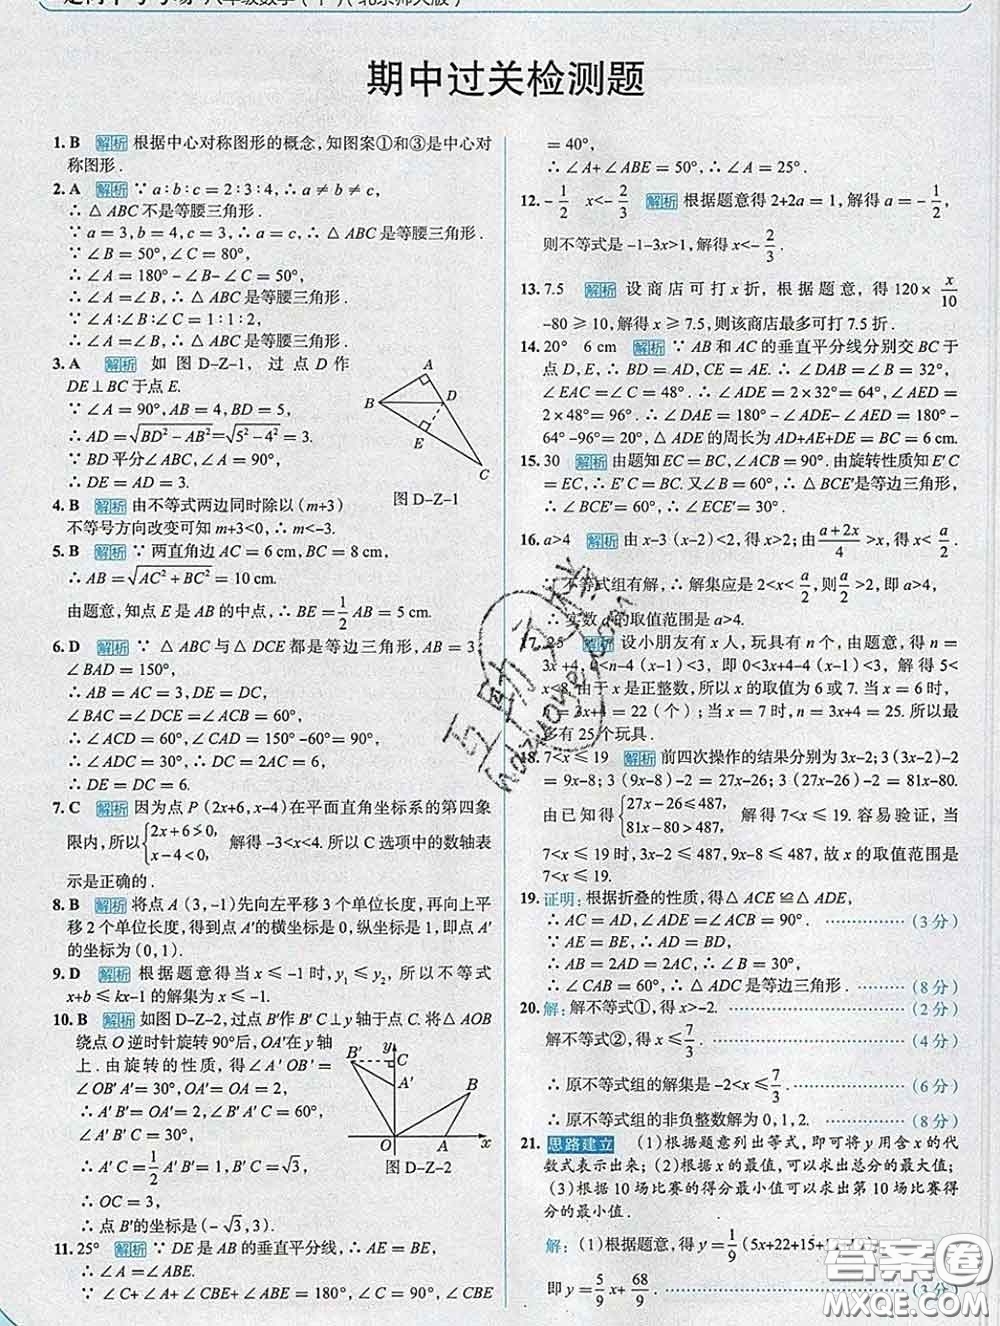 八年级数学(下)(北京师大版)
期中过关检测题
1. B 解析 根据中心对称图形的概念,知图案①和③是中心对
称图形.
2. A 解析 ∵ a∶b∶c=2∶3∶4,∴ a≠b≠c,
∴ △ABC不是等腰三角形.
∵ a=3,b=4,c=3,∴ a=c,∴ △ABC是等腰三角形.
∵ ∠B=50°,∠C=80°,
∴ ∠A=180°-∠B-∠C=50°,
∴ ∠A=∠B,∴ △ABC是等腰三角形.
∵ ∠A∶∠B∶∠C=1∶1∶2,
∴ ∠A=∠B,∴ △ABC是等腰三角形.
3. A 解析 如图D-Z-1,过点D作
DE⊥BC于点E.
∵ ∠A=90°,AB=4,BD=5,
∴ AD=√(BD²-AB²)=√(5²-4²)=3.
∵ BD平分∠ABC,∠A=90°,
∴ DE=AD=3.
A
B
D
E
C
图D-Z-1
4. B 解析 由不等式两边同时除以(m+3)
不等号方向改变可知m+3<0,∴ m<-3.
5. B 解析 ∵ 两直角边AC=6 cm,BC=8 cm,
∴ AB=√(AC²+BC²)=10 cm.
由题意,知点E是AB的中点,∴ BE=1/2 AB=5 cm.
6. D 解析 ∵ △ABC与△DCE都是等边三角形,AB=3,
∠BAD=150°,
∴ AB=AC=3,DE=DC,
∠BAC=∠DCE=∠ACB=60°,
∴ ∠ACD=60°,∠CAD=150°-60°=90°.
∴ ∠ADC=30°,∴ DC=2AC=6.
∴ DE=DC=6.
7. C 解析 因为点P(2x+6,x-4)在平面直角坐标系的第四象
限内,所以{2x+6>0, x-4<0, 解得-3<x<4.所以C选项中的数轴表
示是正确的.
8. B 解析 将点A(3,-1)先向左平移3个单位长度,再向上平
移2个单位长度,得到点A′的横坐标是0,纵坐标是1,即点A′
的坐标为(0,1).
9. D 解析 根据题意得当x≤-1时,y₁≤y₂,所以不等式
x+b≤kx-1的解集为x≤-1.
10. B 解析 如图D-Z-2,过点B′作B′C⊥y轴于点C.将△AOB
绕点O逆时针旋转90°后,OA′在y轴
上.由旋转的性质,得∠A′OB′=
∠OB′A′=30°,OA′=OA=2,
∴ A′B′=OA′=2,∠CB′A′=30°,
∴ A′C=1/2 A′B′=1,B′C=√3,
∴ OC=3,
∴ 点B′的坐标是(-√3,3).
B′
y
C
A′
B
O
A
x
图D-Z-2
11. 25° 解析 ∵ DE是AB的垂直平分线,∴ AE=BE,
∴ ∠A=∠ABE.
∵ ∠C+∠A+∠CBE+∠ABE=180°,∠C=90°,∠CBE
=40°,
∴ ∠A+∠ABE=50°,∴ ∠A=25°.
12. -1/2 x<-2/3 解析 根据题意得2+2a=1,解得a=-1/2,
则不等式是-1-3x>1,解得x<-2/3.
13. 7.5 解析 设商店可打x折,根据题意,得120×x/10
-80≥10,解得x≥7.5,则该商店最多可打7.5折.
14. 20° 6 cm 解析 ∵ AB和AC的垂直平分线分别交BC于
点D,E,∴ BD=AD,CE=AE.∴ ∠DAB=∠B=32°,
∠EAC=∠C=48°.∴ ∠ADE=2×32°=64°,∠AED=
2×48°=96°.∴ ∠DAE=180°-∠ADE-∠AED=180°-
64°-96°=20°,△ADE的周长为AD+AE+DE=BC=6 cm.
15. 30 解析 由题知EC=BC,∠ACB=90°.由旋转性质知E′C
=EC,∴ E′C=BC.又∠B=60°,∴ △BCE′是等边三角形,
∴ ∠BCE′=60°,∴ ∠ECE′=30°.
16. a>4 解析 由x-3(x-2)<2,得x>2;由(a+2x)/4>x,得x<a/2.
∵ 不等式组有解,∴ 解集应是2<x<a/2,则a/2>2,即a>4,
∴ 实数a的取值范围是a>4.
25 解析 设小朋友有x人,玩具有n个,由题意,得n=
3x+4,0<n-4(x-1)<3,即0<3x+4-4(x-1)<3,解得5<
x<8.由于x是正整数,所以x的取值为6或7.当x=6时,
n=3x+4=22(个);当x=7时,n=3x+4=25.所以最
多有25个玩具.
7<x≤19 解析 前四次操作的结果分别为3x-2;3(3x-2)-2
=9x-8;3(9x-8)-2=27x-26;3(27x-26)-2=81x-80.
由已知得{27x-26≤487, 81x-80>487, 解得7<x≤19.容易验证,当
7<x≤19时,3x-2≤487,9x-8≤487,故x的取值范围是
7<x≤19.
19. 证明:根据折叠的性质,得△ACE≌△ADE,
∴ AC=AD,∠ADE=∠ACB=90°. …………(3分)
∵ AE=BE,∴ AD=BD,
∴ AB=2AD=2AC,∴ ∠B=30°,
∴ ∠CAB=60°,∴ △ADC是等边三角形. ……(8分)
20. 解:解不等式①,得x>-2. …………(2分)
解不等式②,得x≤7/3. …………(4分)
∴ 原不等式组的解集是-2<x≤7/3. …………(6分)
∴ 原不等式组的非负整数解为0,1,2. …………(8分)
21. 思路建立 (1)根据题意列出等式,即可将y用含x的代
数式表示出来;(2)根据x的最值,可以求出总分的最大值;
(3)根据10场比赛的得分最小值可以求出第10场比赛得
分的最小值.
解:(1)根据题意,得y=1/9(5x+22+15+
即y=5/9x+68/9. …………(3分)
答案圈
MXQE.COM